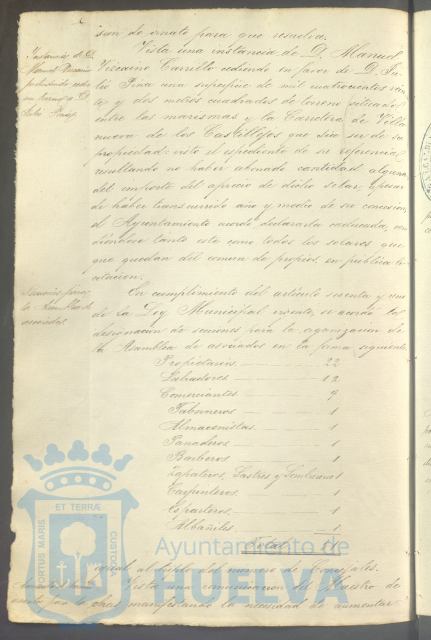 sion de ornato para que resuelva.
Instancia de D.
Manuel Vizcaino
pidiendo ceder
un terreno a D.
Julio Pina
Vista una instancia de D. Manuel
Vizcaino Carrillo cediendo en favor de D. Ju-
lio Pina una superficie de mil cuatrocientos
y dos metros cuadrados de terreno situado
entre las marismas y la Carretera de Villa
nueva de los Castillejos que dice ser de su
propiedad: visto el espediente de su referencia y
resultando no haber abonado cantidad alguna
del importe del aprecio de dicho solar, apesar
de haber transcurrido año y medio de su concesion,
el Ayuntamiento acordó declararla caducada,
diendose tanto este como todos los solares que
que quedan del comun de propios, en pública li-
citacion.
Secciones para
la Asamblea de
asociados
En cumplimiento del artículo sesenta y uno
de la Ley Municipal vigente, se acordó la
designacion de secciones para la organizacion de
la Asamblea de asociados en la forma siguiente
Propietarios 22
Labradores 12
Comerciantes
Taberneros 1
Almacenistas 1
Panaderos 1
Barberos 1
Zapateros, Sastres y 1
Carpinteros 1
Esparteros 1
Albañiles 1
Total
igual al triplo del numero de Concejales.
Vista una comunicacion del Maestro de
obras manifestando la necesidad de aumentar
ET TERRAE
PORTUS MARIS
CUSTODIA
Ayuntamiento de
HUELVA